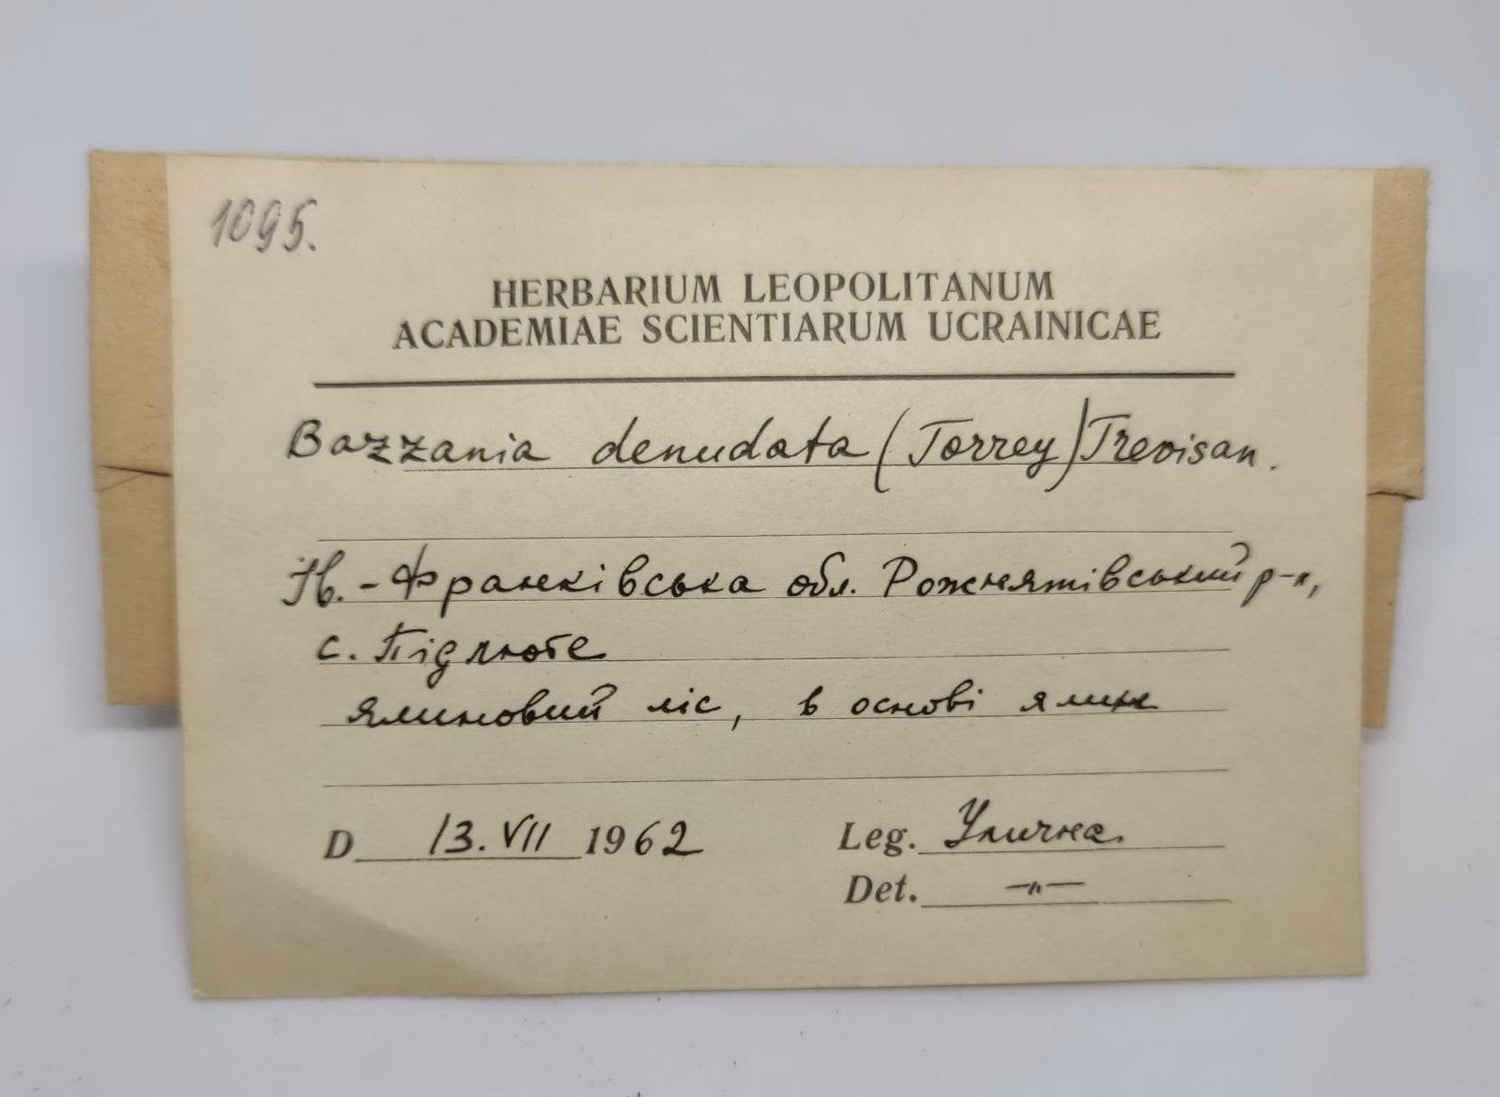 1095.
HERBARIUM LEOPOLITANUM
ACADEMIAE SCIENTIARUM UCRAINICAE
Bazzania denudata (Torrey) Trevisan.
Ів.-Франківська обл. Рожнятівський р-н,
с. Підлюте
ялиновий ліс, в основі ялин
D 13. VII 1962 Leg. Улична.
Det. —"—